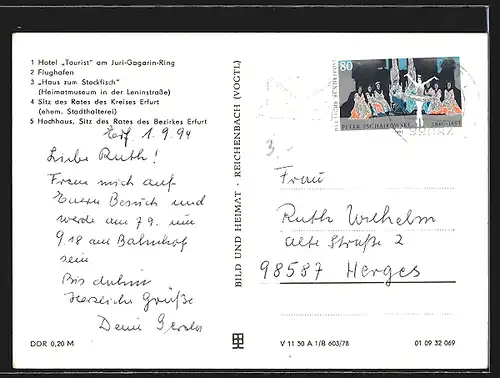 1 Hotel „Tourist“ am Juri-Gagarin-Ring
2 Flughafen
3 „Haus zum Stockfisch“
(Heimatmuseum in der Leninstraße)
4 Sitz des Rates des Kreises Erfurt
(ehem. Statthalterei)
5 Hochhaus, Sitz des Rates des Bezirkes Erfurt
Erf. 1.9.94
Liebe Ruth!
Freue mich auf
Euern Besuch und
werde am 7.9. um
9.18 am Bahnhof
sein
Bis dahin
Herzliche Grüße
Deine
DDR 0,20 M
BILD UND HEIMAT · REICHENBACH (VOGTL)
80
DEUTSCHE BUNDESPOST
PETER TSCHAIKOWSKY 1840-1893
3.-
Frau
Ruth Wilhelm
Alte Straße 2
98587 Herges
V 11 50 A 1/B 603/78
01 09 32 069